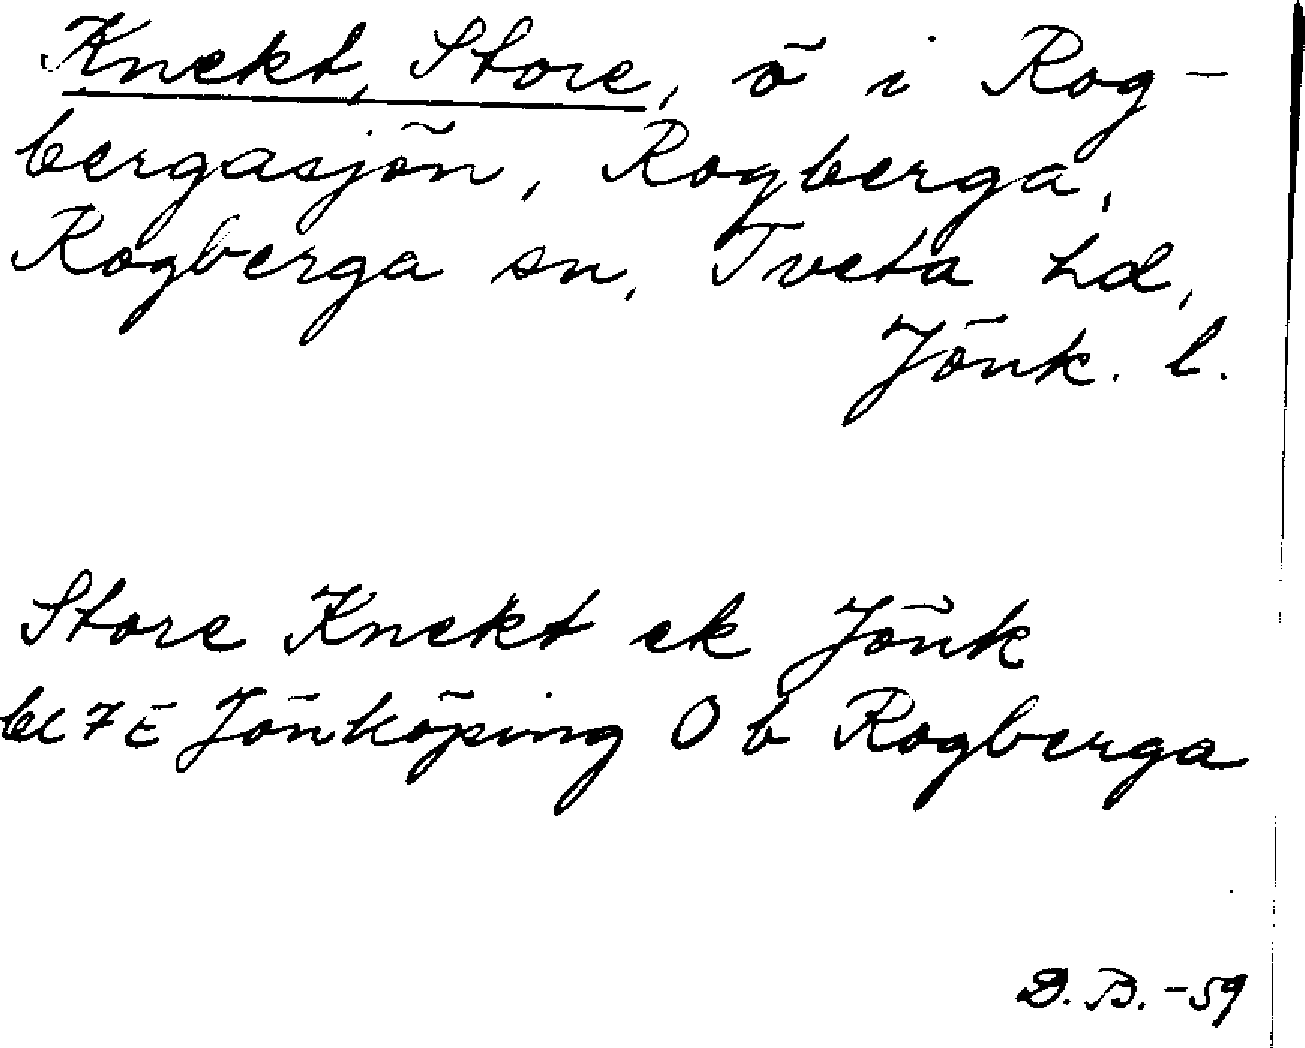 Knekt, Store, ö i Rog-
bergasjön, Rogberga,
Rogberga sn, Tveta hd,
Jönk. l.
Store Knekt ek Jönk
bl 7 E Jönköping O b Rogberga
D. B. -59